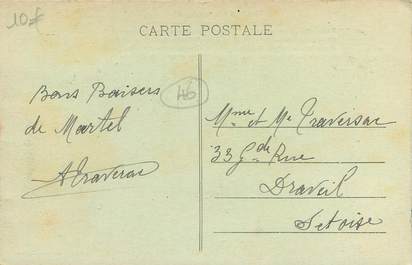 10f
CARTE POSTALE
Bons Baisers
de Martel
ATraversac
46
Mme et Mr Traversac
33 Gde Rue
Draveil
Setoise